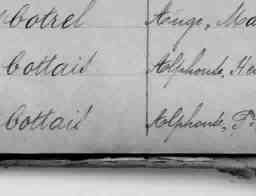 Cotrel Auge, Ma
Cottais Alphonse, He
Cottais Alphonse, F